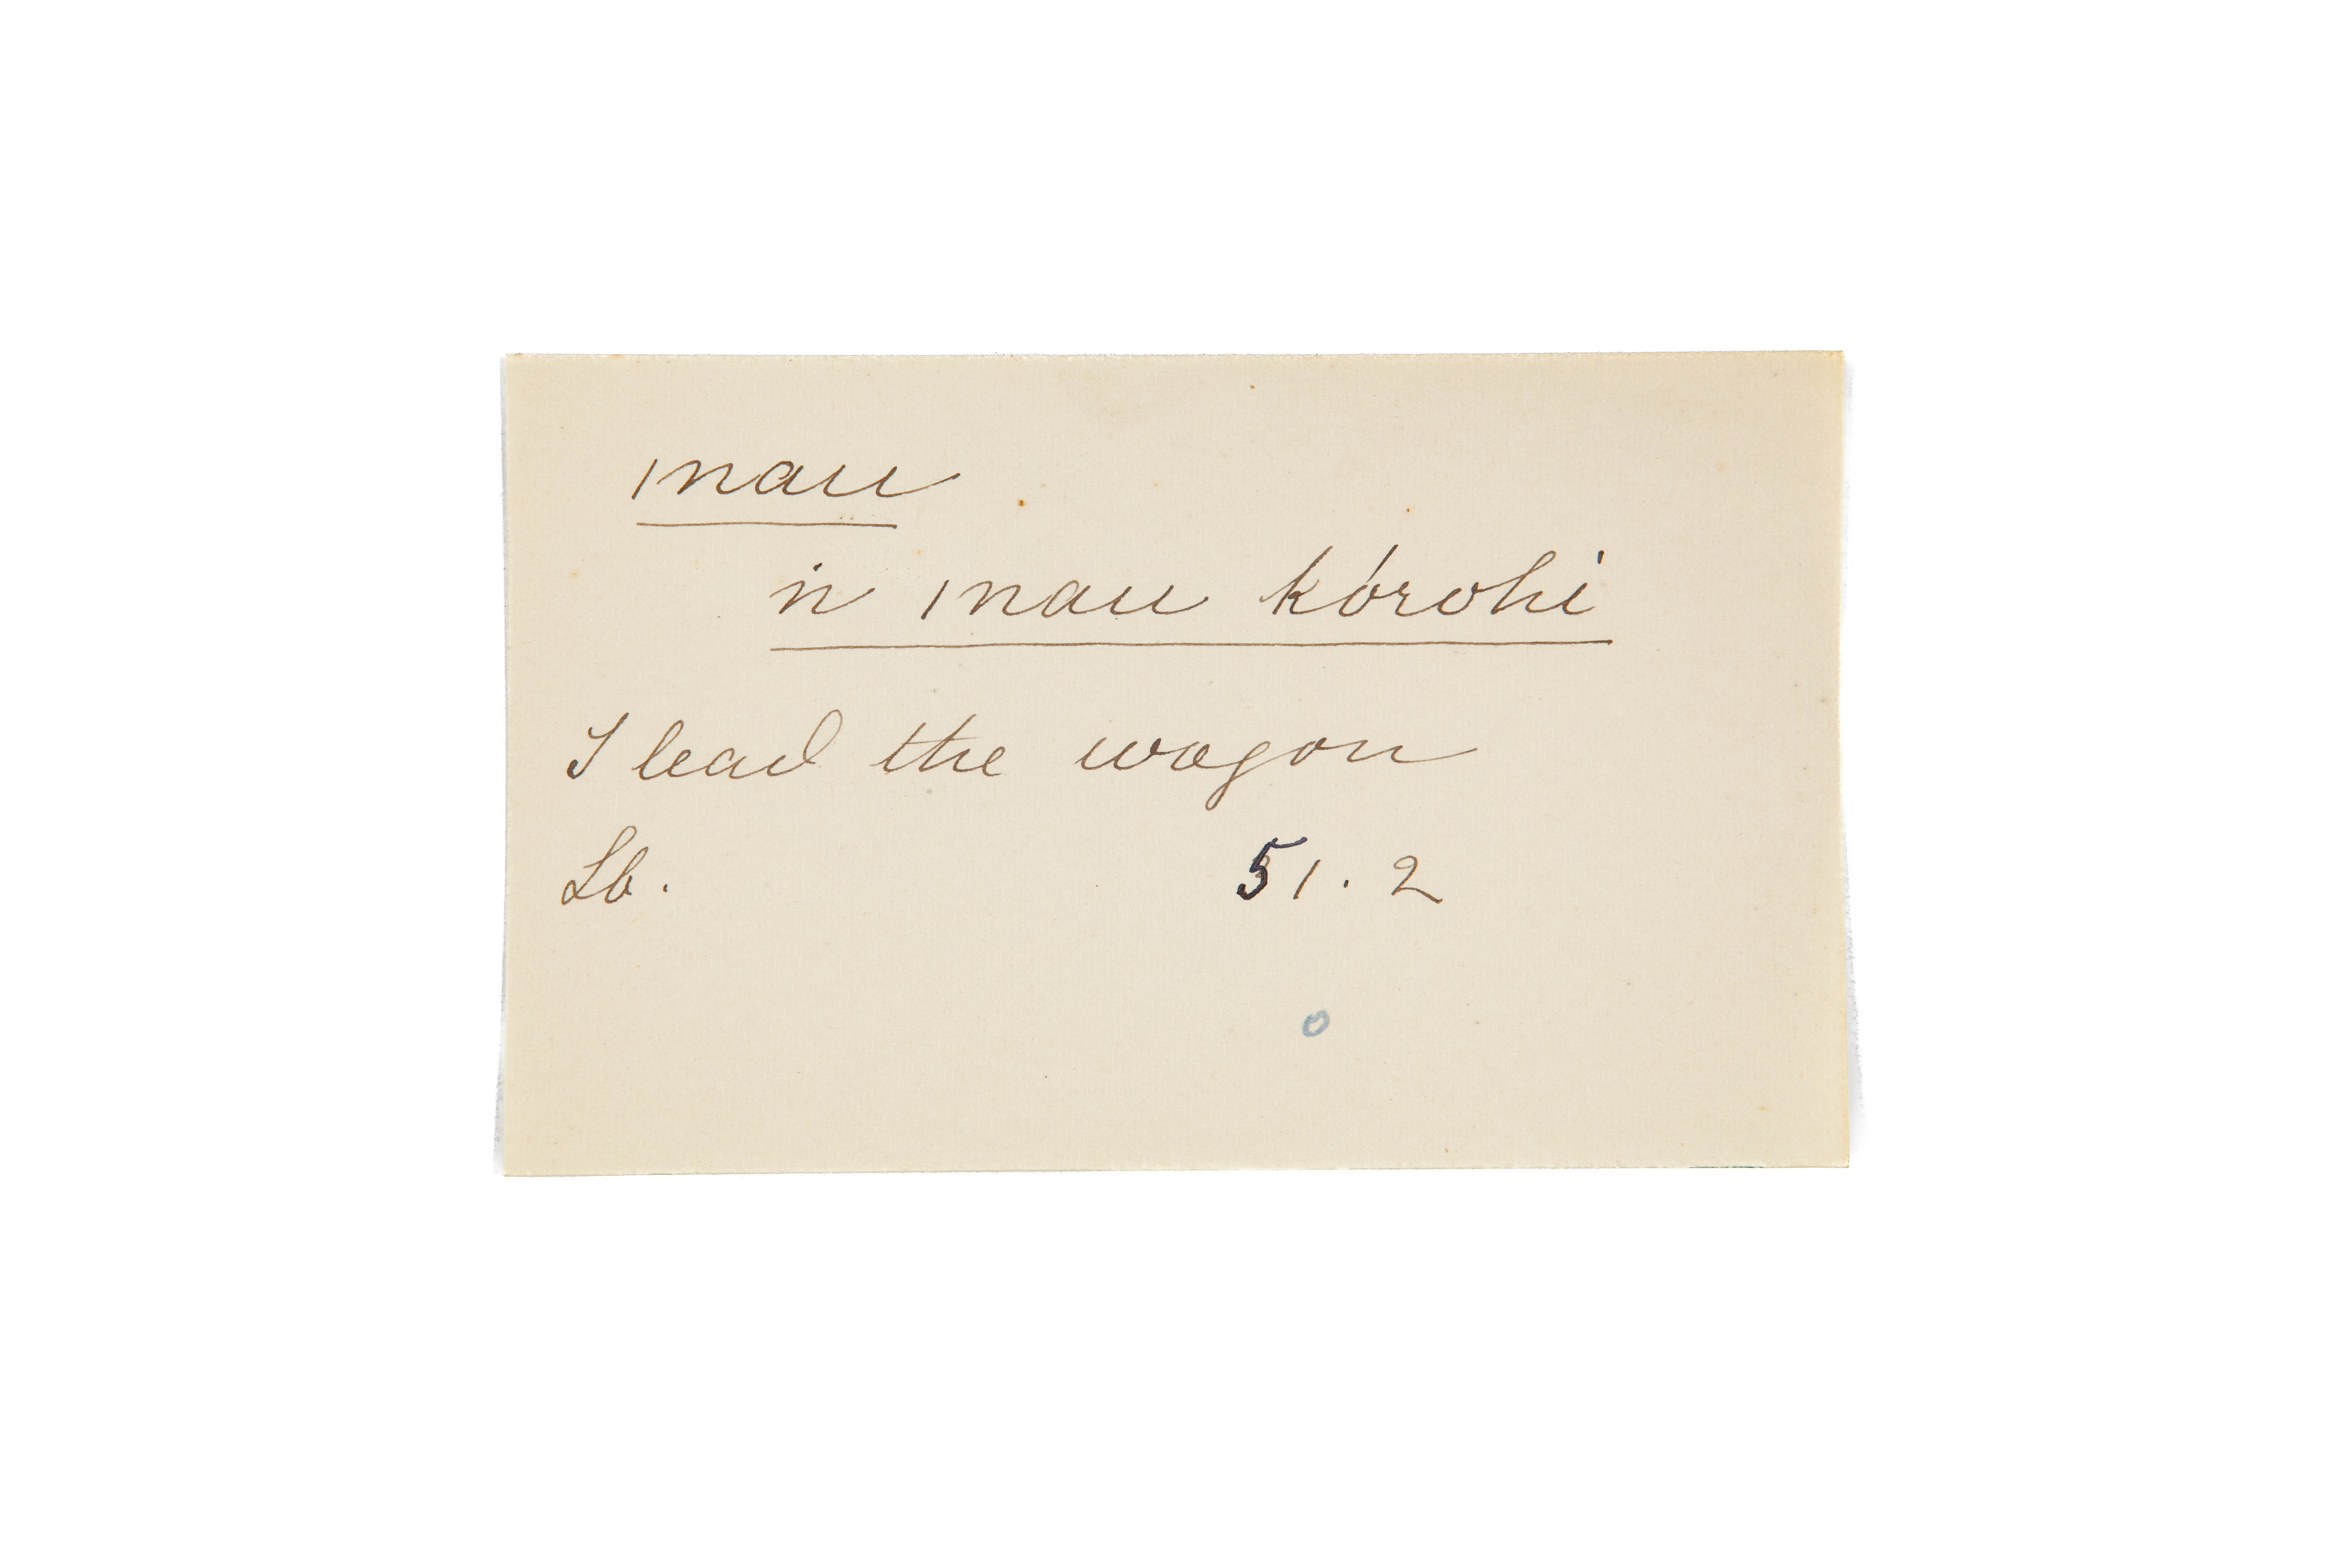 ǀnau
ṅ ǀnau kórohi
I lead the wagon
Lb. 51. 2
o